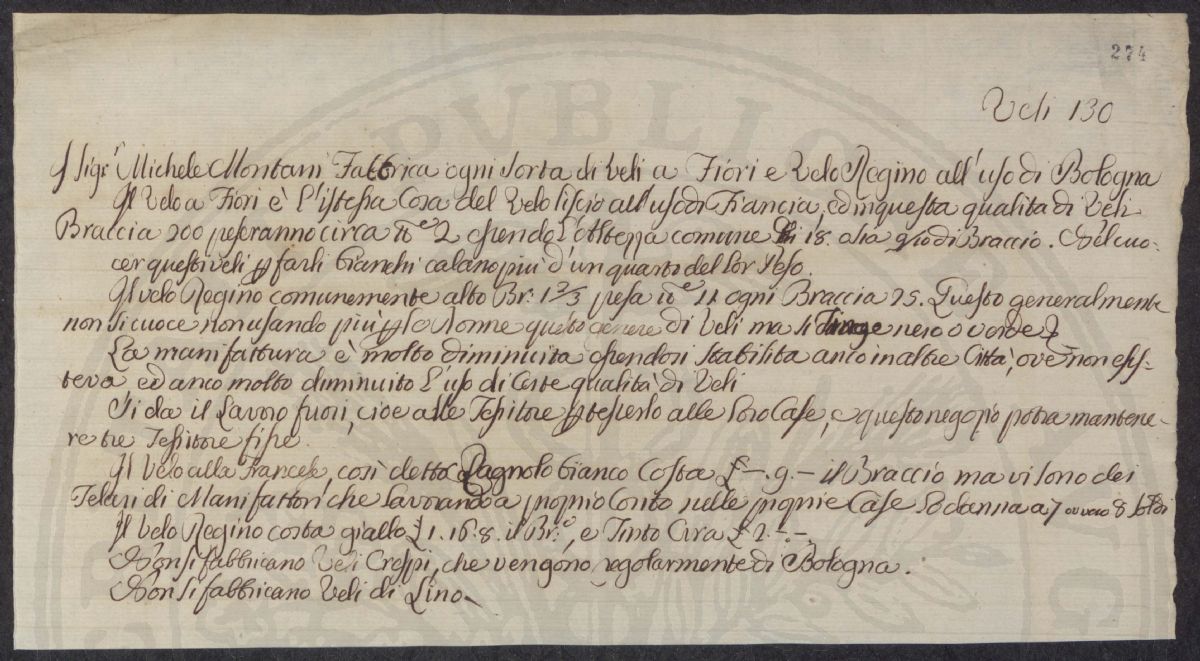 274
Veli 130
Il Sigr. Michele Montani Fabbrica ogni sorta di Veli a Fiori e Velo Regino all'uso di Bologna
Il Velo a Fiori è l'istessa Cosa del Velo liscio all'uso di Francia, ed in questa qualità di Veli
Braccia 200 peseranno circa 2 essendo l'Altezza comune di 18. di Braccio. Nel cuo-
cer questi veli p farli bianchi calano più d'un quarto del lor Peso.
Il velo Regino comunemente alto Br: 1 2/3 pesa ogni Braccia 25. Questo generalmente
non si cuoce non usando più p le Donne questo genere di Veli ma si Tinge nero o verde
La manifattura è molto diminuita essendosi stabilita anco in altre Città, ove non esis-
teva ed anco molto diminuito l'uso di Certe qualità di Veli
Si da il Lavoro fuori, cioe alle Tessitore p tesserlo alle loro Case, e questo negozio potra mantene-
re tre Tessitore fisse.
Il Velo alla Francese, così detto Bagnolo bianco Costa £ -. 9. - il Braccio ma vi sono dei
Telari di Manifattori che lavorando a proprio Conto nelle proprie Case lo danno a 7 ovvero 8 soldi
Il Velo Regino costa giallo £ 1. 16. 8. il Br:, e Tinto Circa £ 2. -. -.
Non si fabbricano Veli Crespi, che vengono regolarmente di Bologna.
Non si fabbricano Veli di Lino
PVBLIC